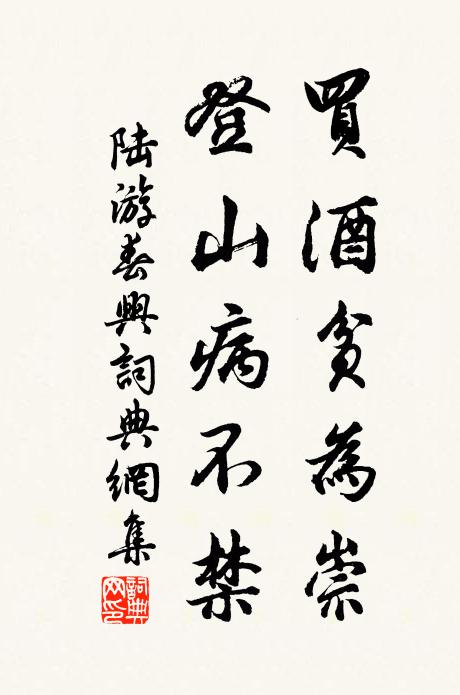 買酒貧為祟
登山病不禁
陸游春興詞典網集
詞典
网印